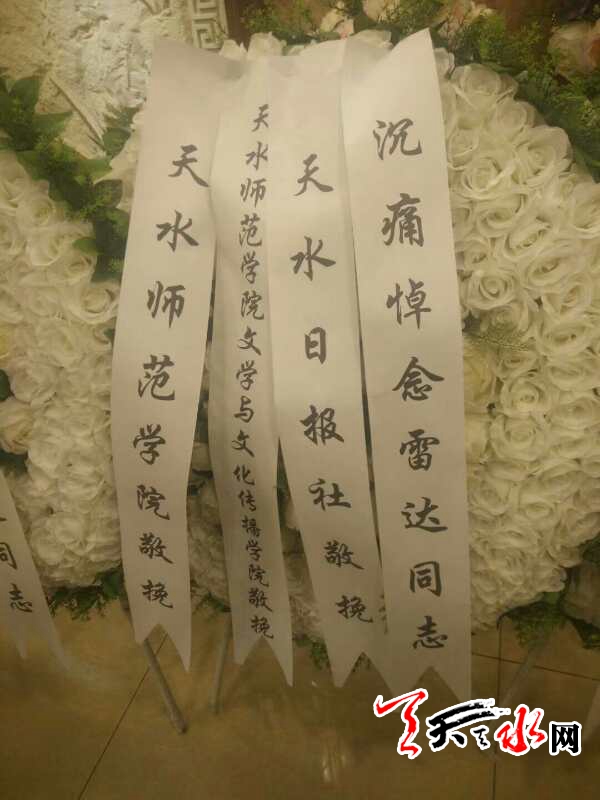 沉痛悼念雷达同志
天水日报社敬挽
天水师范学院文学与文化传播学院敬挽
天水师范学院敬挽
同志
天天水网